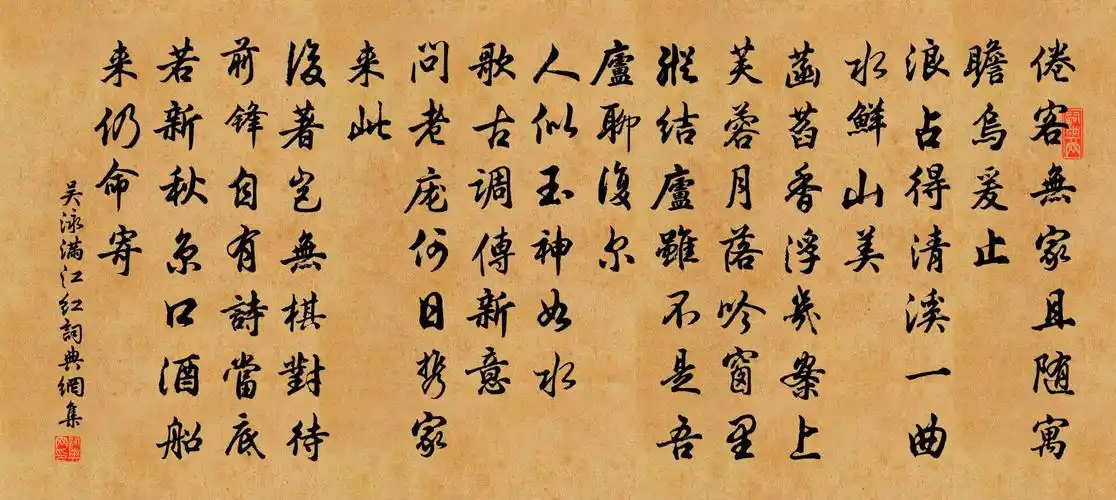 倦客無家且随寓
瞻烏爰止
浪占得清溪一曲
水鮮山美
菡萏香浮幾案上
芙蓉月落吟窗里
縱結廬雖不是吾
廬聊復尔
人似玉神如水
歌古調傳新意
問老庞何日携家
来此
後著岂無棋對待
前鋒自有詩當底
若新秋京口酒船
来仍命寄
吴泳满江红詞典網集